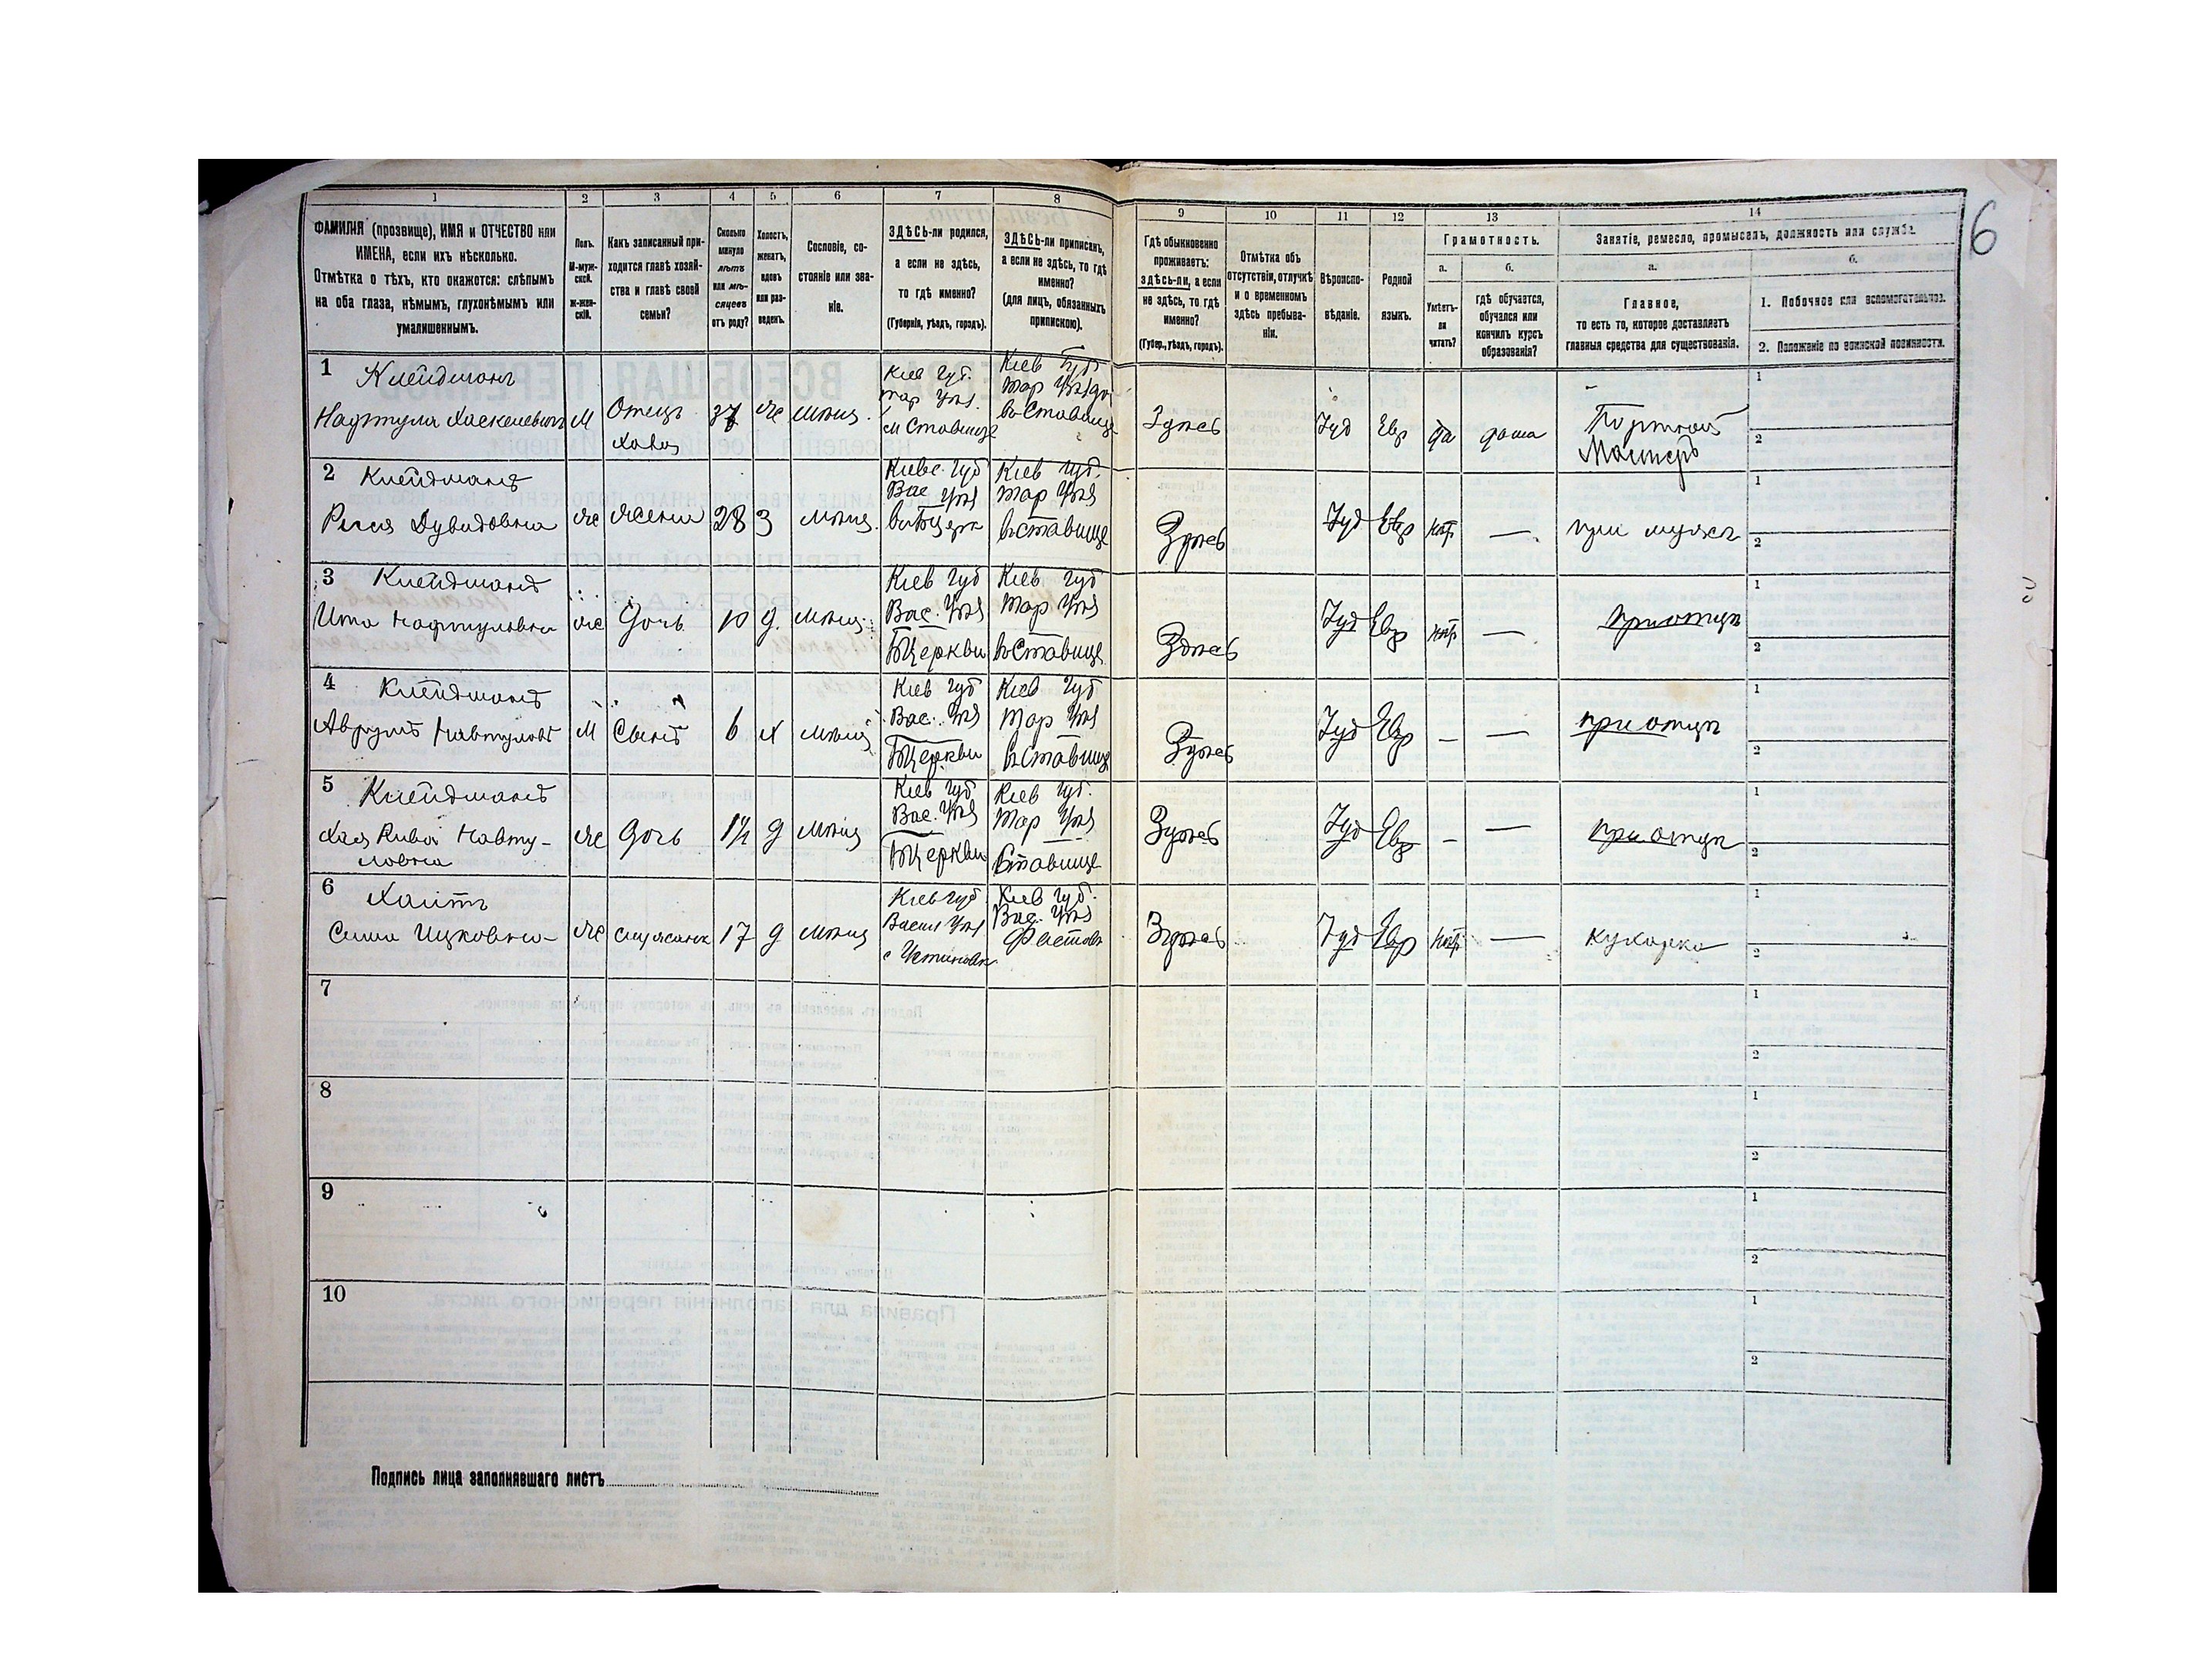 1 2 3 4 5 6 7 8 9 10 11 12 13 14
6
ФАМИЛІЯ (прозвище), ИМЯ и ОТЧЕСТВО или
ИМЕНА, если ихъ нѣсколько.
Отмѣтка о тѣхъ, кто окажется: слѣпымъ
на оба глаза, нѣмымъ, глухонѣмымъ или
умалишеннымъ.
Полъ.
М-муж-
ской.
Ж-жен-
скій.
Какъ записанный при-
ходится главѣ хозяй-
ства и главѣ своей
семьи?
Сколько
минуло
лѣтъ
или мѣ-
сяцевъ
отъ роду?
Холостъ,
женатъ,
вдовъ
или раз-
веденъ.
Сословіе, со-
стояніе или зва-
ніе.
ЗДѢСЬ-ли родился,
а если не здѣсь,
то гдѣ именно?
(Губернія, уѣздъ, городъ).
ЗДѢСЬ-ли приписанъ,
а если не здѣсь, то гдѣ
именно?
(для лицъ, обязанныхъ
припискою).
Гдѣ обыкновенно
проживаетъ:
здѣсь-ли, а если
не здѣсь, то гдѣ
именно?
(Губер., уѣздъ, городъ).
Отмѣтка объ
отсутствіи, отлучкѣ
и о временномъ
здѣсь пребыва-
ніи.
Вѣроиспо-
вѣданіе.
Родной
языкъ.
Грамотность.
а.
Умѣетъ-
ли
читать?
б.
гдѣ обучается,
обучался или
кончилъ курсъ
образованія?
Занятіе, ремесло, промыселъ, должность или служба.
а.
Главное,
то есть то, которое доставляетъ
главныя средства для существованія.
б.
1. Побочное или вспомогательное.
2. Положеніе по воинской повинности.
1 Клейдманъ
Нафтула Хаскелевичъ М Отецъ 37 же мѣщ.
хозяи
Кіев Губ.
тар Уѣз.
м Ставище
Кіев Губ
тар Уѣзд
въ Ставище
Здѣсь Іуд Евр да дома
Портной
Мастеръ
1
2
2 Клейдманъ
Дувидовна же жена 28 З мѣщ.
Кіевс. Губ
Вас Уѣз
Кіев Губ.
тар Уѣз
въ Ставище
Здѣсь Іуд Евр нѣт — при мужѣ
1
2
3 Клейдманъ
Ита Нафтуловна же Дочь 10 д. мѣщ.
Кіев Губ
Вас. Уѣз
БЦеркви
Кіев Губ
тар Уѣз
въ Ставище
Здѣсь Іуд Евр нѣт — при отцѣ
1
2
4 Клейдманъ
Аврумъ Навтулов М Сынъ 6 х мѣщ
Кіев Губ
Вас. Уѣз
БЦеркви
Кіев Губ
тар Уѣз
въ Ставище
Здѣсь Іуд Евр — — при отцѣ
1
2
5 Клейдманъ
Хая Рива Навту-
ловна
же Дочь 1½ д мѣщ
Кіев Губ
Вас. Уѣз
БЦеркви
Кіев Губ.
тар Уѣз
Ставище
Здѣсь Іуд Евр — — при отцѣ
1
2
6 Хаитъ
Ицковна же 17 д мѣщ
Кіев Губ
Васил Уѣз
с Устиновк
Кіев Губ.
Вас. Уѣз
Фастовъ
Здѣсь Іуд Евр нѣт — кухарка
1
2
7
1
2
8
1
2
9
1
2
10
1
2
Подпись лица заполнявшаго листъ